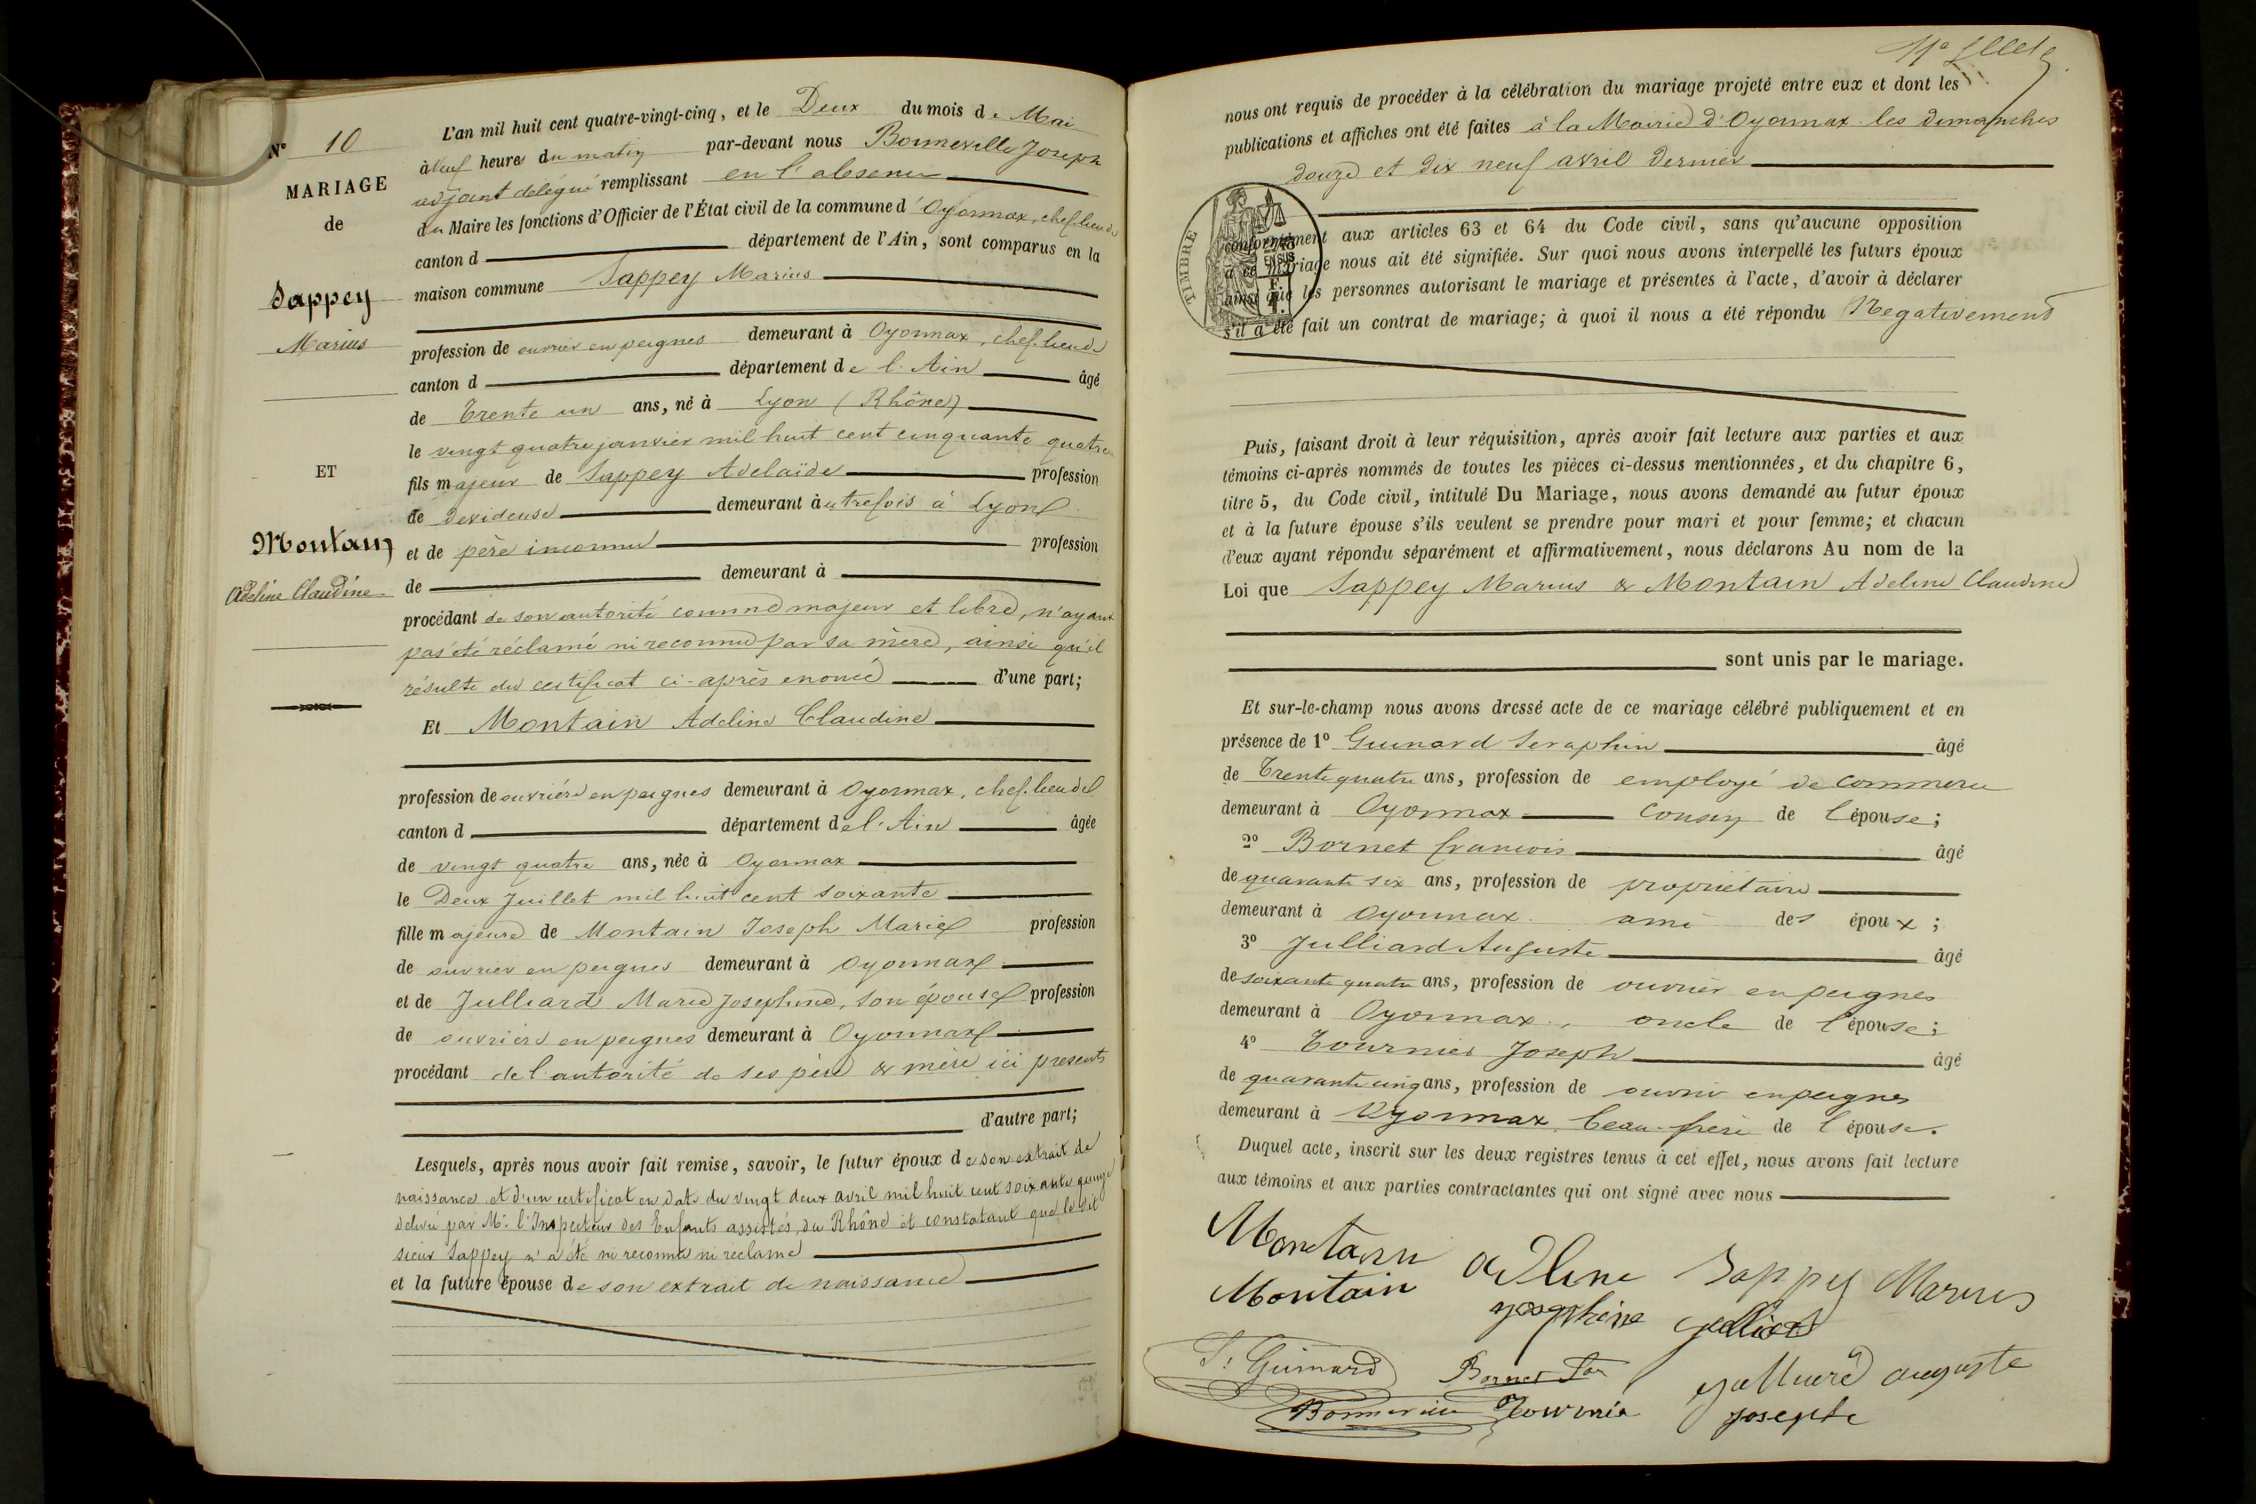 N° 10
MARIAGE
de
Sappey
Marius
ET
Montain
Adeline Claudine
L'an mil huit cent quatre-vingt-cinq, et le Deux du mois de Mai
à neuf heures du matin par-devant nous Bonneville Joseph
adjoint délégué remplissant en l'absence
du Maire les fonctions d'Officier de l'État civil de la commune d'Oyonnax, chef-lieu de
canton d département de l'Ain, sont comparus en la
maison commune Sappey Marius
profession de ouvrier en peignes demeurant à Oyonnax, chef-lieu de
canton d département de l'Ain âgé
de Trente un ans, né à Lyon (Rhône)
le vingt quatre janvier mil huit cent cinquante quatre
fils majeur de Sappey Adelaïde profession
de devideuse demeurant autrefois à Lyon
et de père inconnu profession
de demeurant à
procédant de son autorité comme majeur et libre, n'ayant
pas été réclamé ni reconnu par sa mère, ainsi qu'il
résulte du certificat ci-après enoncé d'une part;
Et Montain Adeline Claudine
profession de ouvrière en peignes demeurant à Oyonnax, chef-lieu de
canton d département de l'Ain âgée
de vingt quatre ans, née à Oyonnax
le Deux Juillet mil huit cent soixante
fille majeure de Montain Joseph Marie profession
de ouvrier en peignes demeurant à Oyonnax
et de Julliard Marie Josephine, son épouse profession
de ouvrière en peignes demeurant à Oyonnax
procédant de l'autorité de ses père & mère ici presents
d'autre part;
Lesquels, après nous avoir fait remise, savoir, le futur époux de son extrait de
naissance et d'un certificat en date du vingt deux avril mil huit cent soixante quinze
délivré par Mr. l'Inspecteur des Enfants assistés du Rhône et constatant que le dit
sieur Sappey n'a été ni reconnu ni réclamé
et la future épouse de son extrait de naissance
nous ont requis de procéder à la célébration du mariage projeté entre eux et dont les
publications et affiches ont été faites à la Mairie d'Oyonnax les dimanches
douze et dix neuf avril dernier
TIMBRE
conformément aux articles 63 et 64 du Code civil, sans qu'aucune opposition
à ce mariage nous ait été signifiée. Sur quoi nous avons interpellé les futurs époux
ainsi que les personnes autorisant le mariage et présentes à l'acte, d'avoir à déclarer
s'il a été fait un contrat de mariage; à quoi il nous a été répondu Negativement
Puis, faisant droit à leur réquisition, après avoir fait lecture aux parties et aux
témoins ci-après nommés de toutes les pièces ci-dessus mentionnées, et du chapitre 6,
titre 5, du Code civil, intitulé Du Mariage, nous avons demandé au futur époux
et à la future épouse s'ils veulent se prendre pour mari et pour femme; et chacun
d'eux ayant répondu séparément et affirmativement, nous déclarons Au nom de la
Loi que Sappey Marius & Montain Adeline Claudine
sont unis par le mariage.
Et sur-le-champ nous avons dressé acte de ce mariage célébré publiquement et en
présence de 1° Guinard Seraphin âgé
de Trente quatre ans, profession de employé de commerce
demeurant à Oyonnax cousin de l'épouse;
2° Bornet françois âgé
de quarante six ans, profession de propriétaire
demeurant à Oyonnax ami des époux;
3° Julliard Auguste âgé
de soixante quatre ans, profession de ouvrier en peignes
demeurant à Oyonnax, oncle de l'épouse;
4° Tournier Joseph âgé
de quarante cinq ans, profession de ouvrier en peignes
demeurant à Oyonnax, beau-frère de l'épouse.
Duquel acte, inscrit sur les deux registres tenus à cet effet, nous avons fait lecture
aux témoins et aux parties contractantes qui ont signé avec nous
Montain Adline Sappey Marius
Montain Josephine
S. Guinard Bornet julliard auguste
Bonneville Tournier joseph